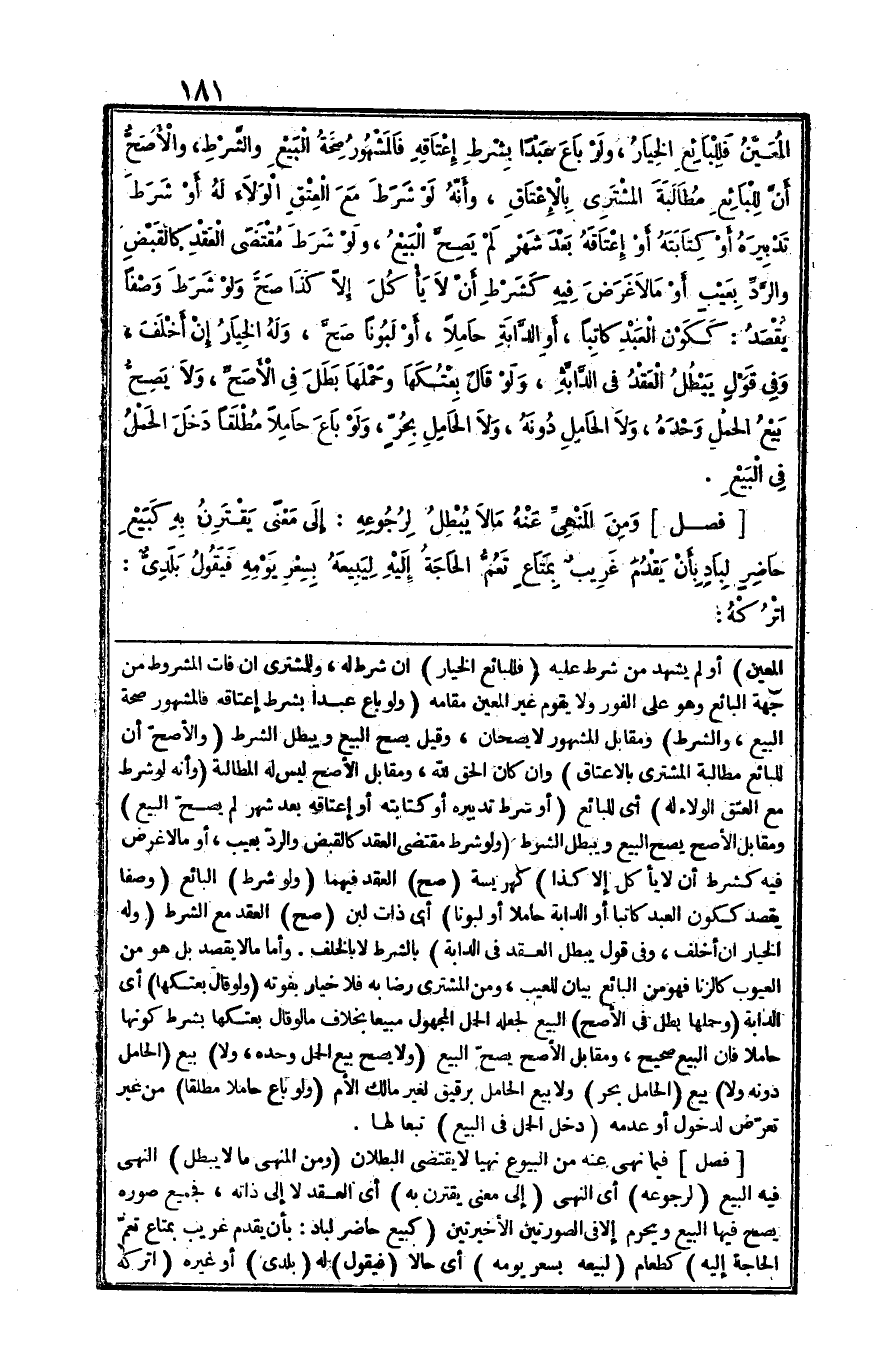 ١٨١
الْمُعَيَّنُ فَلِلْبَائِعِ الخِيَارُ ، وَلَوْ بَاعَ عَبْدًا بِشَرطِ إِعْتَاقِهِ فَالمَشْهُورُ صِحَّةُ الْبَيْعِ والشَّرْطِ، والْأَصَحُّ
أَنَّ لِلْبَائِعِ مُطَالَبَةَ المُشْتَرِى بِالْإِعْتَاقِ ، وأَنَّهُ لَوْ شَرَطَ مَعَ الْعِتْقِ الْوَلَاءَ لَهُ أَوْ شَرَطَ
تَدْبِيرَهُ أَوْ كِتَابَتَهُ أَوْ إِعْتَاقَهُ بَعْدَ شَهْرٍ لَمْ يَصِحَّ الْبَيْعُ ، ولَوْ شَرَطَ مُقْتَضَى الْعَقْدِ كالْقَبْضِ
والرَّدِّ بِعَيْبٍ أَوْ مَالاَ غَرَضَ فِيهِ كَشَرْطِ أَنْ لاَ يَأْ كُلَ إِلاَّ كَذَا صَحَّ وَلَوْ شَرَطَ وَصْفًا
يُقْصَدُ : كَكَوْنِ الْعَبْدِ كاتِبًا ، أَوِ الدَّابَّةِ حامِلاً ، أَوْ لَبُونًا صَحَّ ، وَلَهُ الخِيَارُ إِنْ أَخْلَفَ ،
وَفِى قَوْلٍ يَبْطُلُ الْعَقْدُ فى الدَّابَّةِ ، وَلَوْ قَالَ بِعْتُكَهَا وحَمْلَهَا بَطَلَ فِى الْأَصَحِّ ، وَلاَ يَصِحُّ
بَيْعُ الحَمْلِ وَحْدَهُ ، وَلاَ الحَامِلِ دُونَهُ ، وَلاَ الحَامِلِ بِحُرٍّ ، وَلَوْ بَاعَ حَامِلاً مُطْلَقًا دَخَلَ الحَمْلُ
فِى الْبَيْعِ .
[ فصـل ] وَمِنَ المَنْهِىِّ عَنْهُ مَالاَ يُبْطِلُ لِرُجُوعِهِ : إِلَى مَعْنًى يَقْتَرِنُ بِهِ كَبَيْعِ
حَاضِرٍ لِبَادٍ بِأَنْ يَقْدُمَ غَرِيبٌ بِمَتَاعٍ تَعُمُّ الحَاجَةُ إِلَيْهِ لِيَبِيعَهُ بِسِعْرِ يَوْمِهِ فَيَقُولُ بَلَدِىٌّ :
اتْرُكْهُ :
المعين ) أو لم يشهد من شرط عليه ( فللبائع الخيار ) ان شرط له ، وللمشترى ان فات المشروط من
جهة البائع وهو على الفور ولا يقوم غير المعين مقامه ( ولو باع عبـدا بشرط إعتاقه فالمشهور صحة
البيع ، والشرط ) ومقابل المشهور لا يصحان ، وقيل يصح البيع ويبطل الشرط ( والأصحّ أن
للبائع مطالبة المشترى بالاعتاق ) وان كان الحق لله ، ومقابل الأصح ليس له المطالبة ( وأنه لو شرط
مع العتق الولاء له ) أى للبائع ( أو شرط تدبيره أو كتابته أو إعتاقه بعد شهر لم يصـحّ البيع )
ومقابل الأصح يصح البيع ويبطل الشرط ( ولو شرط مقتضى العقد كالقبض والردّ بعيب ، أو مالا غرض
فيه كشرط أن لا يأ كل إلا كذا ) كهريسة ( صح ) العقد فيهما ( ولو شرط ) البائع ( وصفا
يقصد ككون العبد كاتبا أو الدابة حاملا أو لبونا ) أى ذات لبن ( صح ) العقد مع الشرط ( وله
الخيار ان أخلف ، وفى قول يبطل العـقد فى الدابة ) بالشرط لا بالخلف . وأما مالا يقصد بل هو من
العيوب كالزنا فهو من البائع بيان للعيب ، ومن المشترى رضا به فلا خيار بفوته ( ولو قال بعتكها ) أى
الدابة ( وحملها بطل فى الأصح ) البيع لجعله الحمل المجهول مبيعا بخلاف مالو قال بعتكها بشرط كونها
حاملا فان البيع صحيح ، ومقابل الأصح يصحّ البيع ( ولا يصح بيع الحمل وحده ، ولا ) بيع ( الحامل
دونه ولا ) بيع ( الحامل بحر ) ولا بيع الحامل برقيق لغير مالك الأم ( ولو باع حاملا مطلقا ) من غير
تعرّض لدخول أو عدمه ( دخل الحمل فى البيع ) تبعا لهـا .
[ فصل ] فيما نهى عنه من البيوع نهيا لا يقتضى البطلان ( ومن المنهى ما لا يبطل ) النهى
فيه البيع ( لرجوعه ) أى النهـى ( إلى معنى يقترن به ) أى العـقد لا إلى ذاته ، فجميع صوره
يصح فيها البيع ويحرم إلا فى الصورتين الأخيرتين ( كبيع حاضر لباد : بأن يقدم غريب بمتاع تعمّ
الحاجة إليه ) كطعام ( ليبيعه بسعر يومه ) أى حالا ( فيقول ) له ( بلدى ) أو غيره ( اتركه